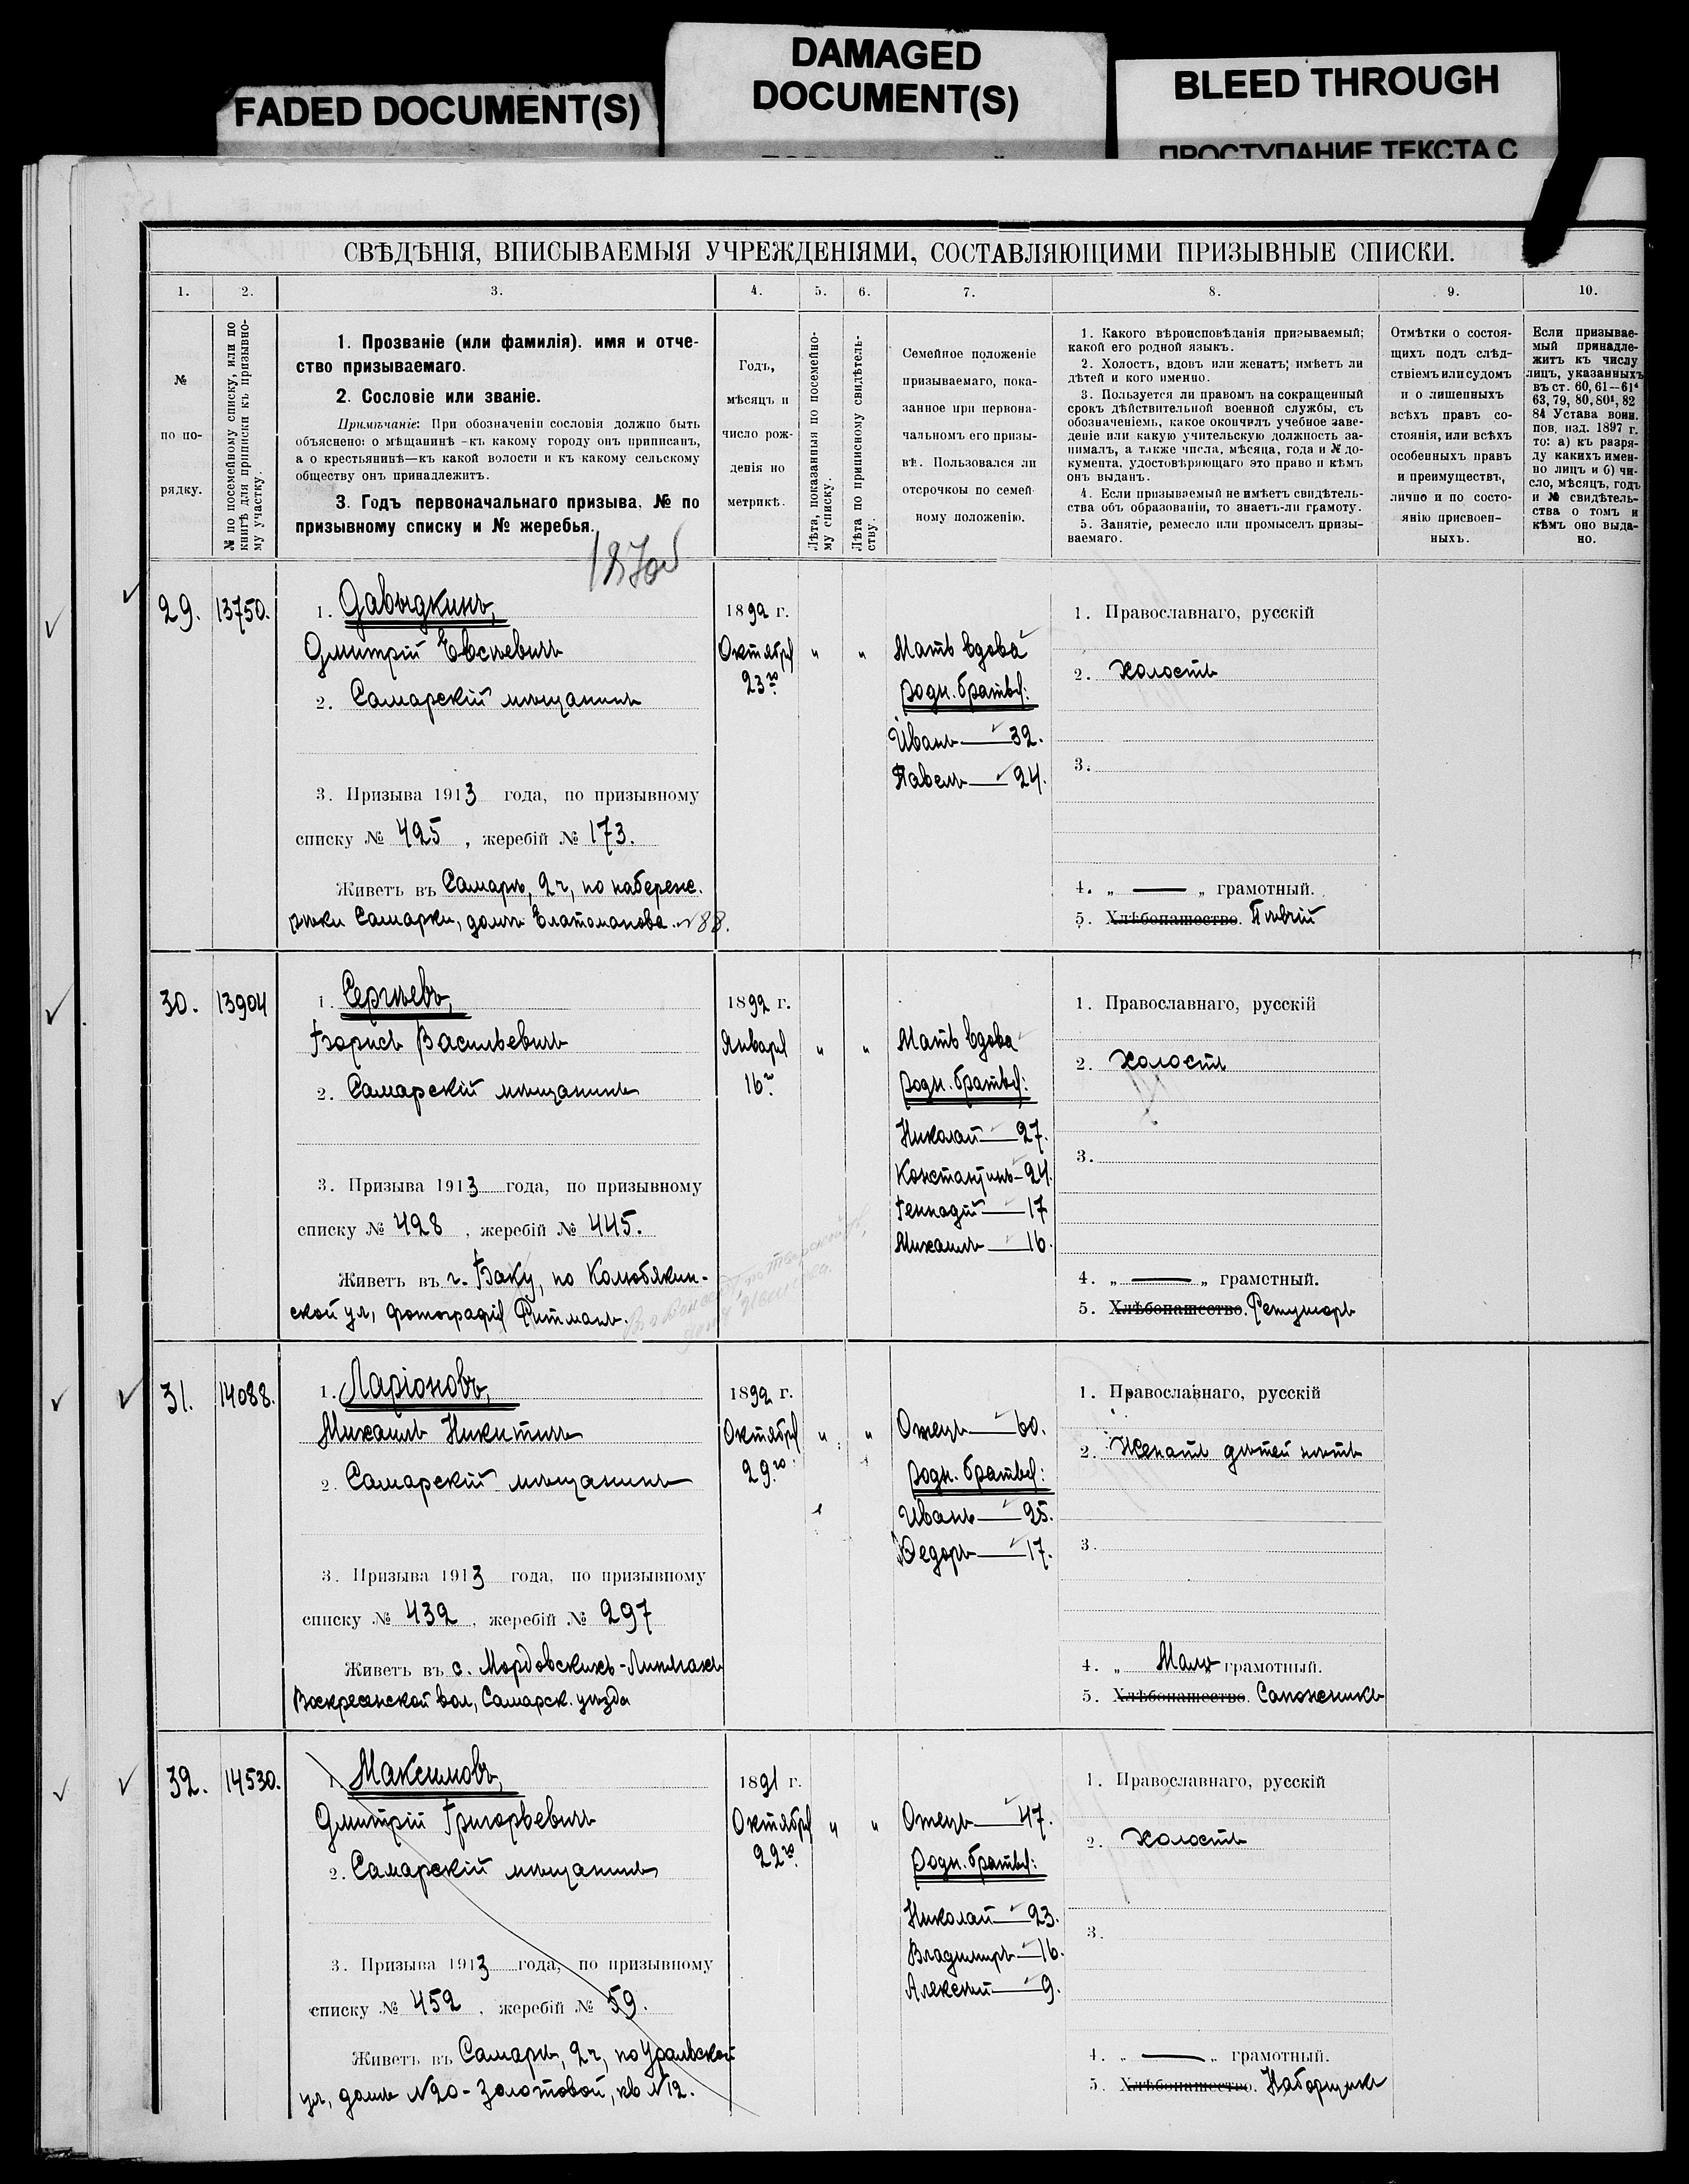 FADED DOCUMENT(S)
DAMAGED
DOCUMENT(S)
BLEED THROUGH
ПРОСТУПАНИЕ ТЕКСТА С
СВѢДѢНІЯ, ВПИСЫВАЕМЫЯ УЧРЕЖДЕНІЯМИ, СОСТАВЛЯЮЩИМИ ПРИЗЫВНЫЕ СПИСКИ.
1. 2. 3. 4. 5. 6. 7. 8. 9. 10.
№
по по-
рядку.
№ по посемейному списку, или по
книгѣ для приписки къ призывно-
му участку.
1. Прозваніе (или фамилія). имя и отче-
ство призываемаго.
2. Сословіе или званіе.
Примѣчаніе: При обозначеніи сословія должно быть
объяснено: о мѣщанинѣ -къ какому городу онъ приписанъ,
а о крестьянинѣ—къ какой волости и къ какому сельскому
обществу онъ принадлежитъ.
3. Годъ первоначальнаго призыва, № по
призывному списку и № жеребья.
Годъ,
мѣсяцъ и
число рож-
денія по
метрикѣ.
Лѣта, показанныя по посемейно-
му списку.
Лѣта по приписному свидѣтель-
ству.
Семейное положеніе
призываемаго, пока-
занное при первона-
чальномъ его призы-
вѣ. Пользовался ли
отсрочкою по семей-
ному положенію.
1. Какого вѣроисповѣданія призываемый;
какой его родной языкъ.
2. Холостъ, вдовъ или женатъ; имѣетъ ли
дѣтей и кого именно.
3. Пользуется ли правомъ на сокращенный
срокъ дѣйствительной военной службы, съ
обозначеніемъ, какое окончилъ учебное заве-
деніе или какую учительскую должность за-
нималъ, а также числа, мѣсяца, года и № до-
кумента, удостовѣряющаго это право и кѣмъ
онъ выданъ.
4. Если призываемый не имѣетъ свидѣтель-
ства объ образованіи, то знаетъ-ли грамоту.
5. Занятіе, ремесло или промыселъ призы-
ваемаго.
Отмѣтки о состоя-
щихъ подъ слѣд-
ствіемъ или судомъ
и о лишенныхъ
всѣхъ правъ со-
стоянія, или всѣхъ
особенныхъ правъ
и преимуществъ,
лично и по состо-
янію присвоен-
ныхъ.
Если призывае-
мый принадле-
житъ къ числу
лицъ, указанныхъ
въ ст. 60, 61—61⁴
63, 79, 80, 80¹, 82
84 Устава воин.
пов. изд. 1897 г.
то: а) къ разря-
ду какихъ имен-
но лицъ и б) чи-
сло, мѣсяцъ, годъ
и № свидѣтель-
ства о томъ и
кѣмъ оно выда-
но.
29. 13750.
1. Давыдкинъ,
Дмитрій Евсѣевичъ
2. Самарскій мѣщанинъ
3. Призыва 1913 года, по призывному
списку № 425, жеребій № 173.
Живетъ въ Самарѣ, 2 ч, по набереж.
рѣки Самарки, домъ Елатоманова. №88.
1892 г.
Октября
23го
" "
Мать вдова
родн. братья:
Иванъ — 32.
Павелъ — 24.
1. Православнаго, русскій
2. Холостъ
3.
4. „ — „ грамотный.
5. Хлѣбопашество. Пѣвчій
30. 13904
1. Сергѣевъ,
Борисъ Васильевичъ
2. Самарскій мѣщанинъ
3. Призыва 1913 года, по призывному
списку № 428, жеребій № 445.
Живетъ въ г. Баку, по Колюбякин-
ской ул, фотографія Ритманъ.
1892 г.
Января
16го
" "
Мать вдова
родн. братья:
Николай — 27.
Константинъ — 24.
Геннадій — 17
Михаилъ — 16.
1. Православнаго, русскій
2. Холостъ
3.
4. „ — „ грамотный.
5. Хлѣбопашество. Ретушоръ
31. 14088.
1. Ларіоновъ,
Михаилъ Никитичъ
2. Самарскій мѣщанинъ
3. Призыва 1913 года, по призывному
списку № 432, жеребій № 297
Живетъ въ с. Мордовскихъ-Липягахъ
Воскресенской вол, Самарск. уѣзда
1892 г.
Октября
29го
" "
Отецъ — 60.
родн. братья:
Иванъ — 25.
Федоръ — 17.
1. Православнаго, русскій
2. Женатъ дѣтей нѣтъ
3.
4. „ Мало грамотный.
5. Хлѣбопашество. Сапожникъ
32. 14530.
1. Максимовъ,
Дмитрій Григорьевичъ
2. Самарскій мѣщанинъ
3. Призыва 1913 года, по призывному
списку № 452, жеребій № 59.
Живетъ въ Самарѣ, 2 ч, по Уральской
ул, домъ №20 - Золотовой, кв №12.
1891 г.
Октября
22го
" "
Отецъ — 47.
Родн. братья:
Николай — 23.
Владимиръ — 16.
Алексѣй — 9.
1. Православнаго, русскій
2. Холостъ
3.
4. „ — „ грамотный.
5. Хлѣбопашество. Наборщикъ